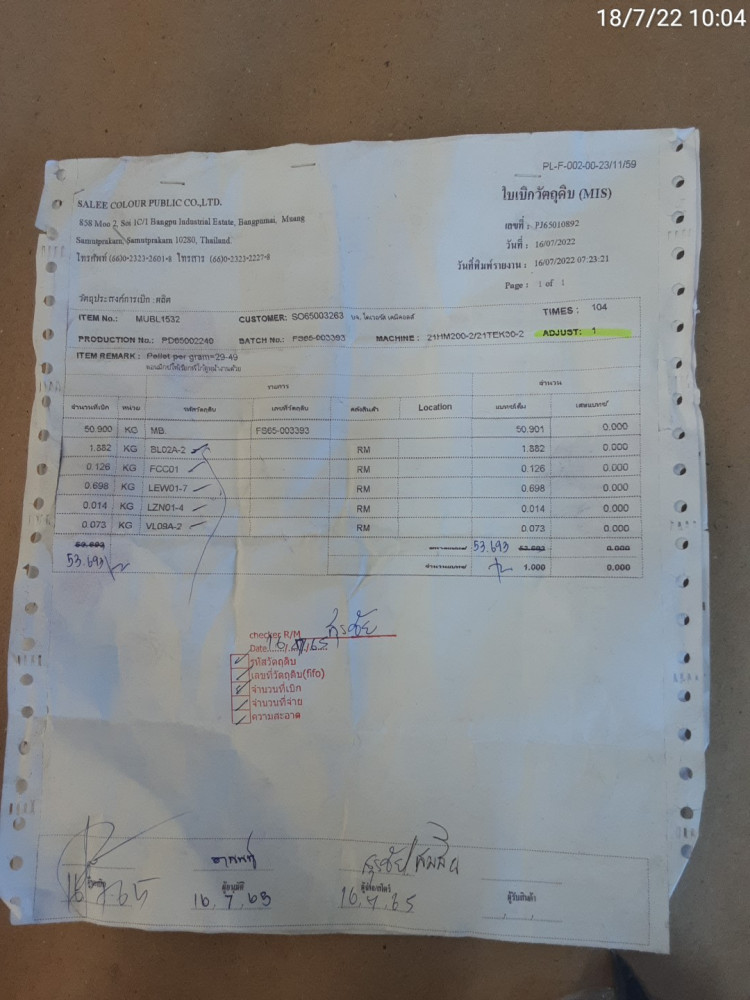 18/7/22 10:04
PL-F-002-00-23/11/59
SALEE COLOUR PUBLIC CO.,LTD.
ใบเบิกวัตถุดิบ (MIS)
858 Moo 2, Soi 1C/1 Bangpu Industrial Estate, Bangpumai, Muang
Samutprakarn, Samutprakarn 10280, Thailand.
โทรศัพท์ (66)0-2323-2601-8 โทรสาร (66)0-2323-2227-8
เลขที่ : PJ65010892
วันที่ : 16/07/2022
วันที่พิมพ์รายงาน : 16/07/2022 07:23:21
Page : 1 of 1
วัตถุประสงค์การเบิก : ผลิต
ITEM No.: MUBL1532 CUSTOMER: SO65003263 TIMES : 104
PRODUCTION No.: PD65002240 BATCH No.: FS65-003393 MACHINE : 21HM200-2/21TEK50-2 ADJUST: 1
ITEM REMARK : Pellet per gram=29-49
รายการ จำนวน
จำนวนที่เบิก หน่วย รหัสวัตถุดิบ เลขที่วัตถุดิบ คลังสินค้า Location แบทช์เต็ม เศษแบทช์
50.900 KG MB FS65-003393 50.901 0.000
1.882 KG BL02A-2 RM 1.882 0.000
0.126 KG FCC01 RM 0.126 0.000
0.698 KG LEW01-7 RM 0.698 0.000
0.014 KG LZN01-4 RM 0.014 0.000
0.073 KG VL09A-2 RM 0.073 0.000
53.693 53.693 0.000
จำนวนแบทช์ 1.000 0.000
checker R/M สุรชัย
Date 16/7/65
รหัสวัตถุดิบ
เลขที่วัตถุดิบ(fifo)
จำนวนที่เบิก
จำนวนที่จ่าย
ความสะอาด
สุรชัย/สมสิน
ผู้อนุมัติ ผู้รับสินค้า
16.7.65 16.7.65